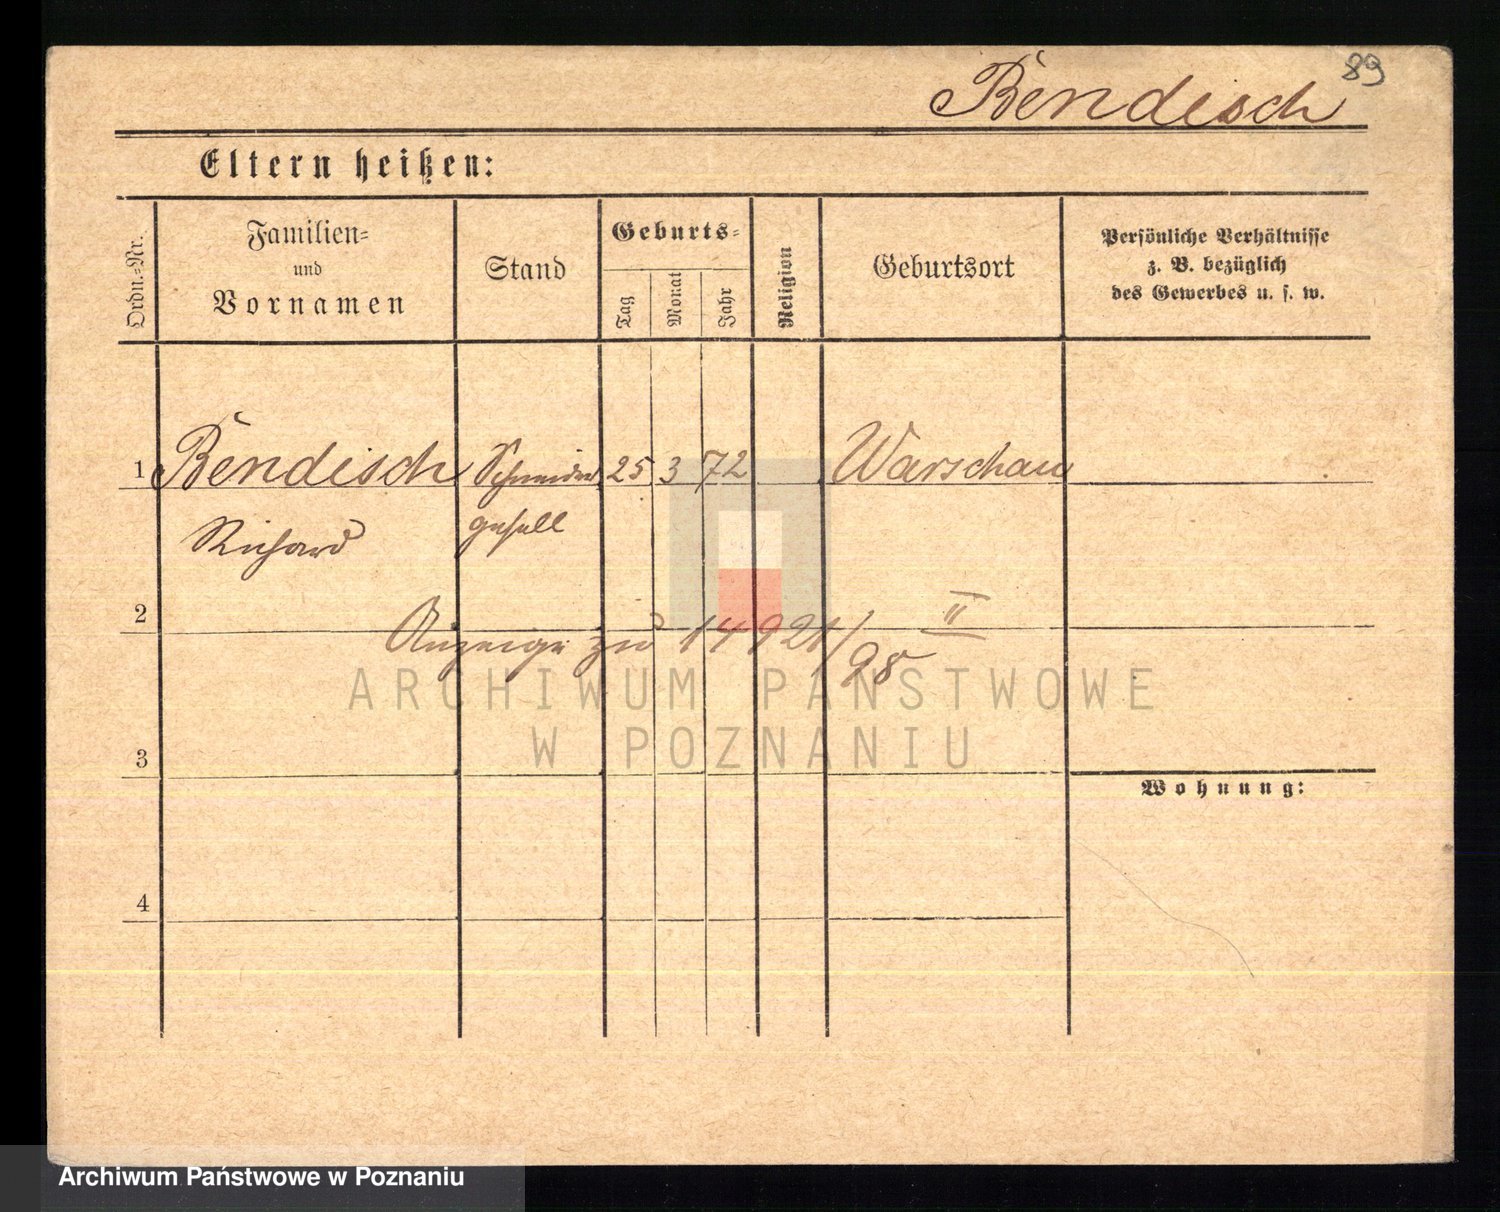 89
Bendisch
Eltern heißen:
Ordn.-Nr.
Familien-
und
Vornamen
Stand
Geburts-
Tag
Monat
Jahr
Religion
Geburtsort
Persönliche Verhältnisse
z. B. bezüglich
des Gewerbes u. s. w.
1 Bendisch Schneider 25 3 72 Warschau
Richard gesell
2
Anzeige zu 14921/98 II
ARCHIWUM PAŃSTWOWE
W POZNANIU
3
Wohnung:
4
Archiwum Państwowe w Poznaniu